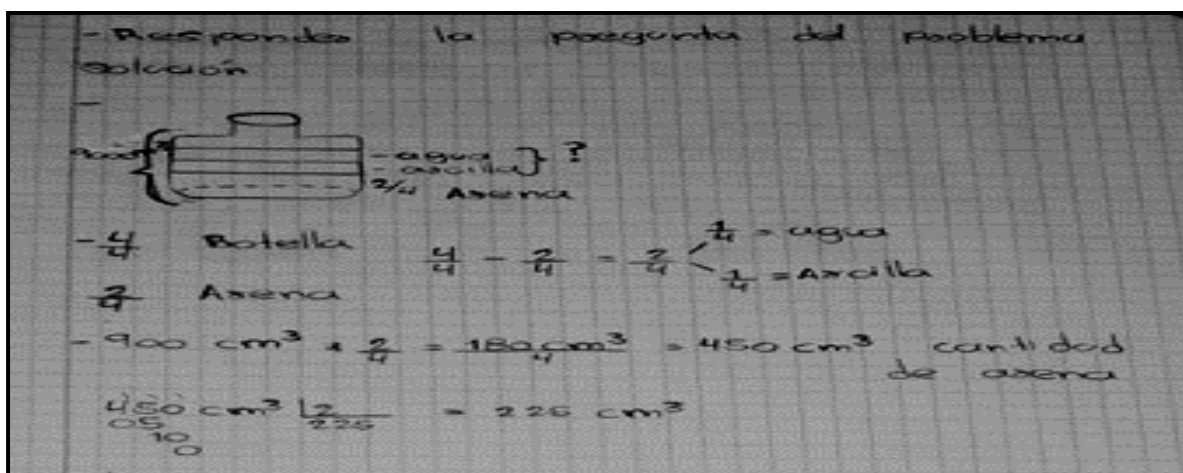 - Responder la pregunta del problema
solución
-
- agua } ?
- arcilla
2/4 Arena
- 4/4 Botella 4/4 - 2/4 = 2/4 1/4 = agua
1/4 = Arcilla
2/4 Arena
- 900 cm³ * 2/4 = 180 cm³/4 = 450 cm³ cantidad
de arena
450 cm³ |2 = 225 cm³
05 225
10
0